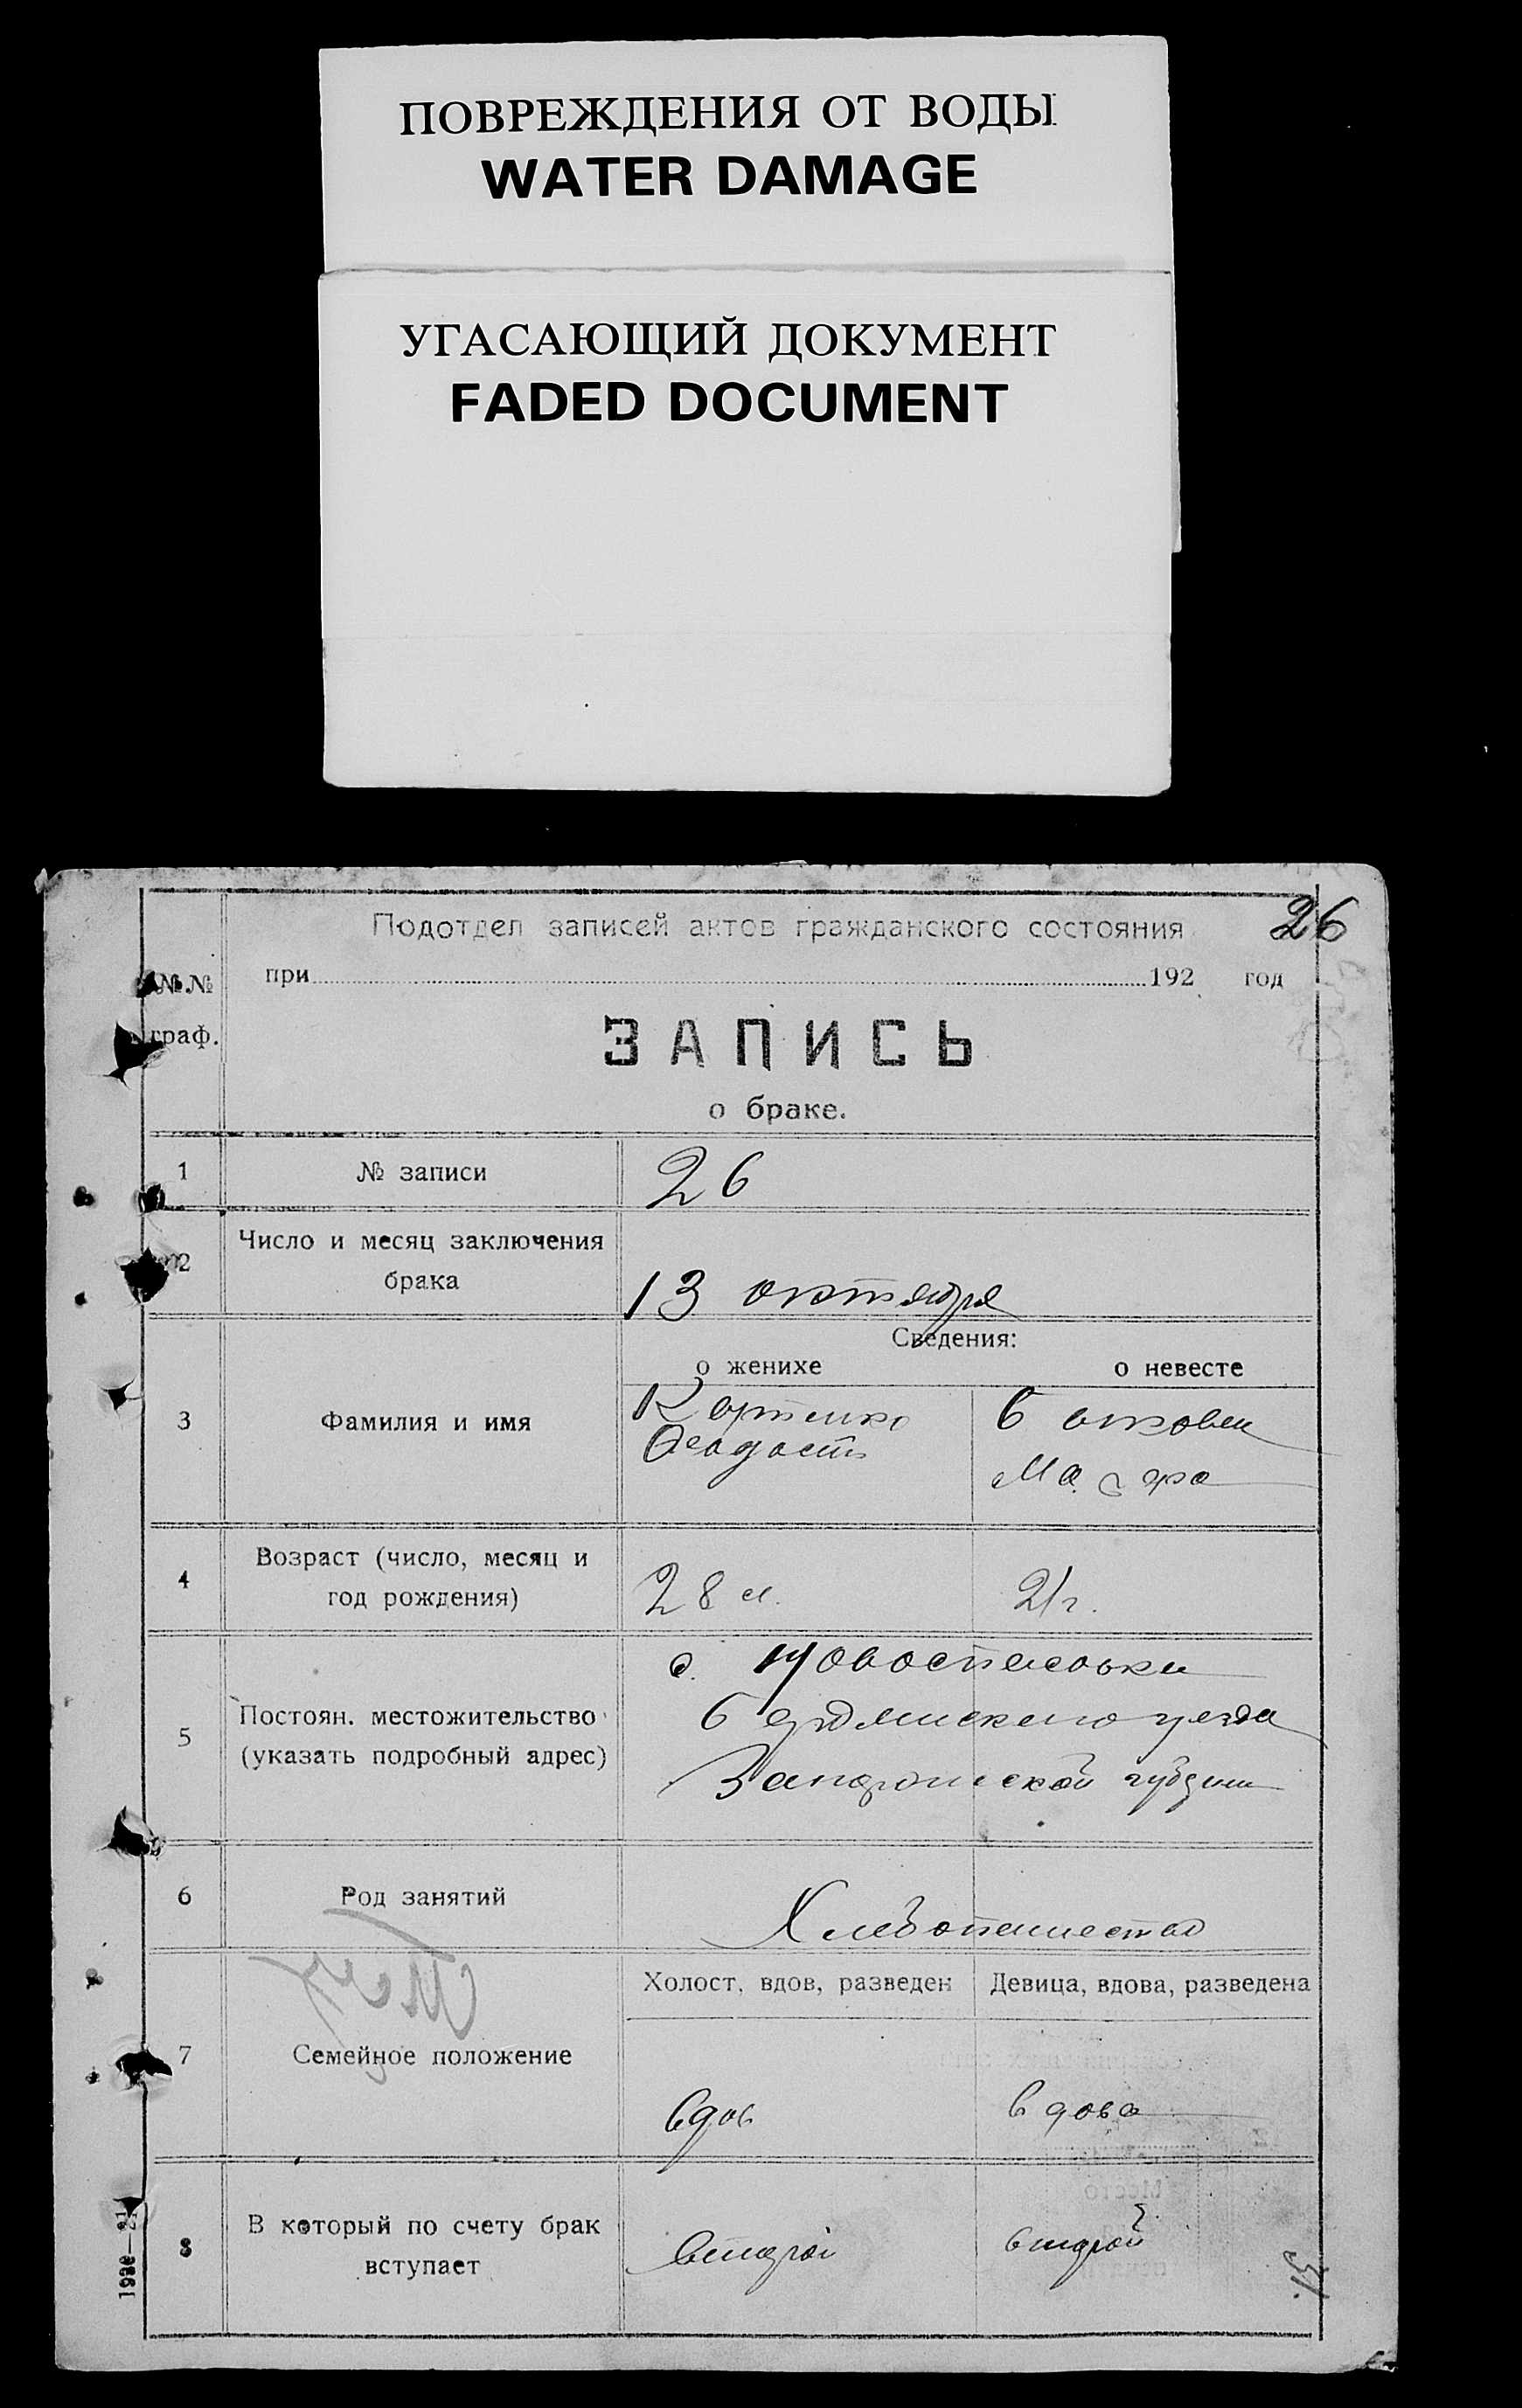 ПОВРЕЖДЕНИЯ ОТ ВОДЫ
WATER DAMAGE
УГАСАЮЩИЙ ДОКУМЕНТ
FADED DOCUMENT
26
Подотдел записей актов гражданского состояния
№№ при 192 год
граф.
ЗАПИСЬ
о браке.
1 № записи 26
2 Число и месяц заключения
брака
13 октября
Сведения:
о женихе о невесте
3 Фамилия и имя
Феодосий
4 Возраст (число, месяц и
год рождения)
28 л. 21 г.
5 Постоян. местожительство
(указать подробный адрес)
с. Новоспасовки
Бердянского уезда
Запорожской губернии
6 Род занятий
Хлебопашество
Холост, вдов, разведен Девица, вдова, разведена
7 Семейное положение
вдов вдова
8 В который по счету брак
вступает
второй второй